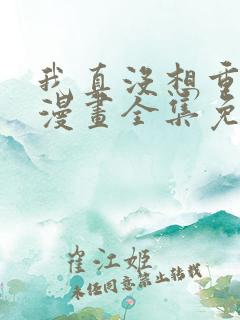 我真没想重
漫畫全集免
崔江姬
未经同意禁止转载